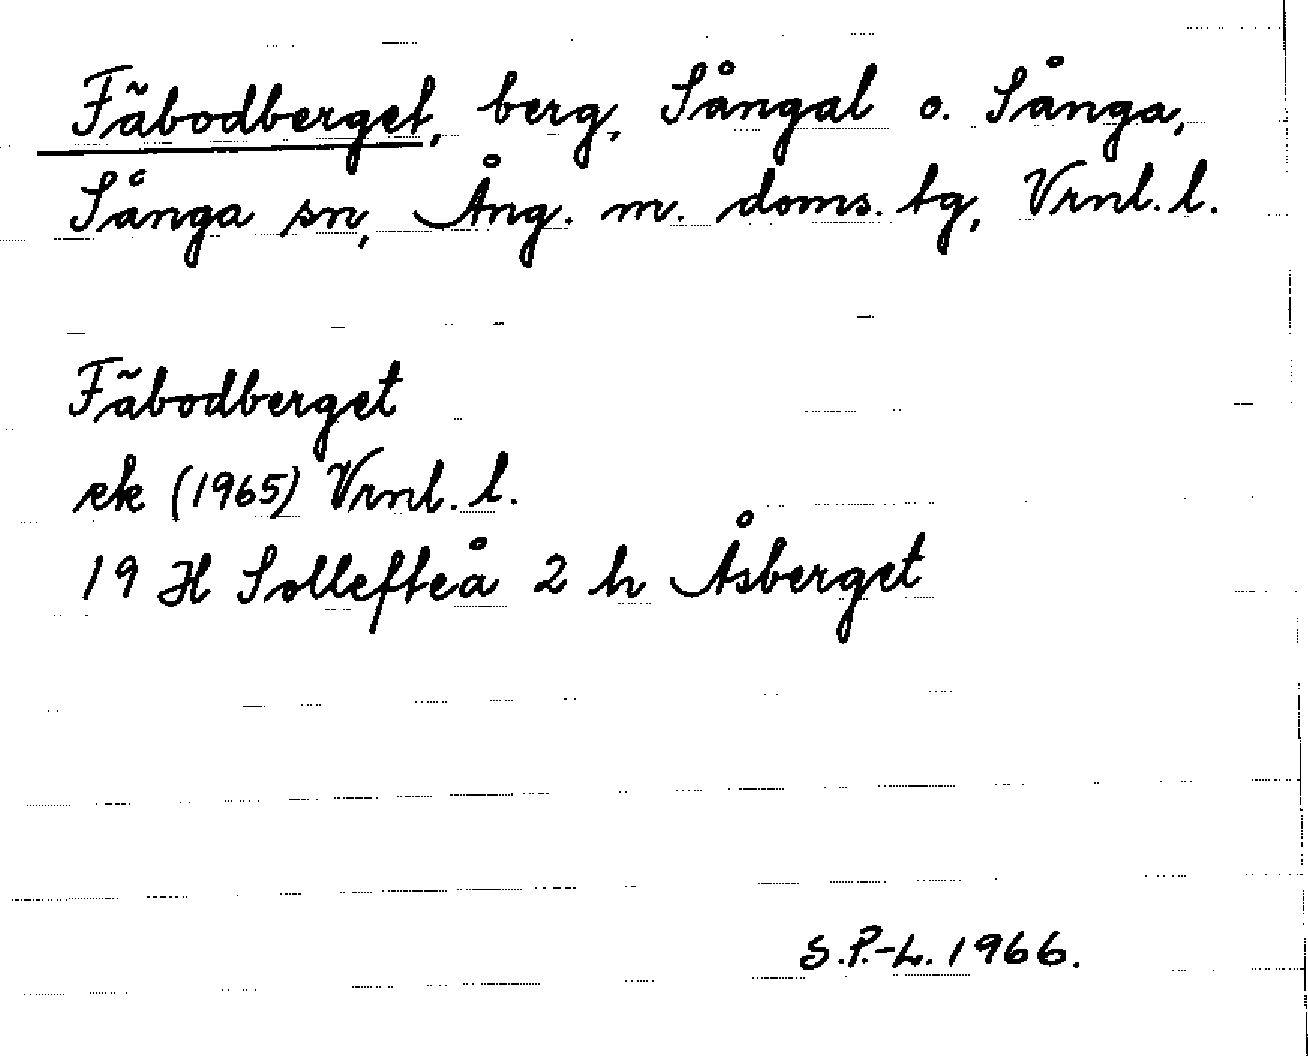 Fäbodberget, berg, Sångal o. Sånga,
Sånga sn, Ång. m. doms. tg, Vrnl. l.
Fäbodberget
ek (1965) Vrnl. l.
19 H Sollefteå 2 h Åsberget
S.P.-L. 1966.